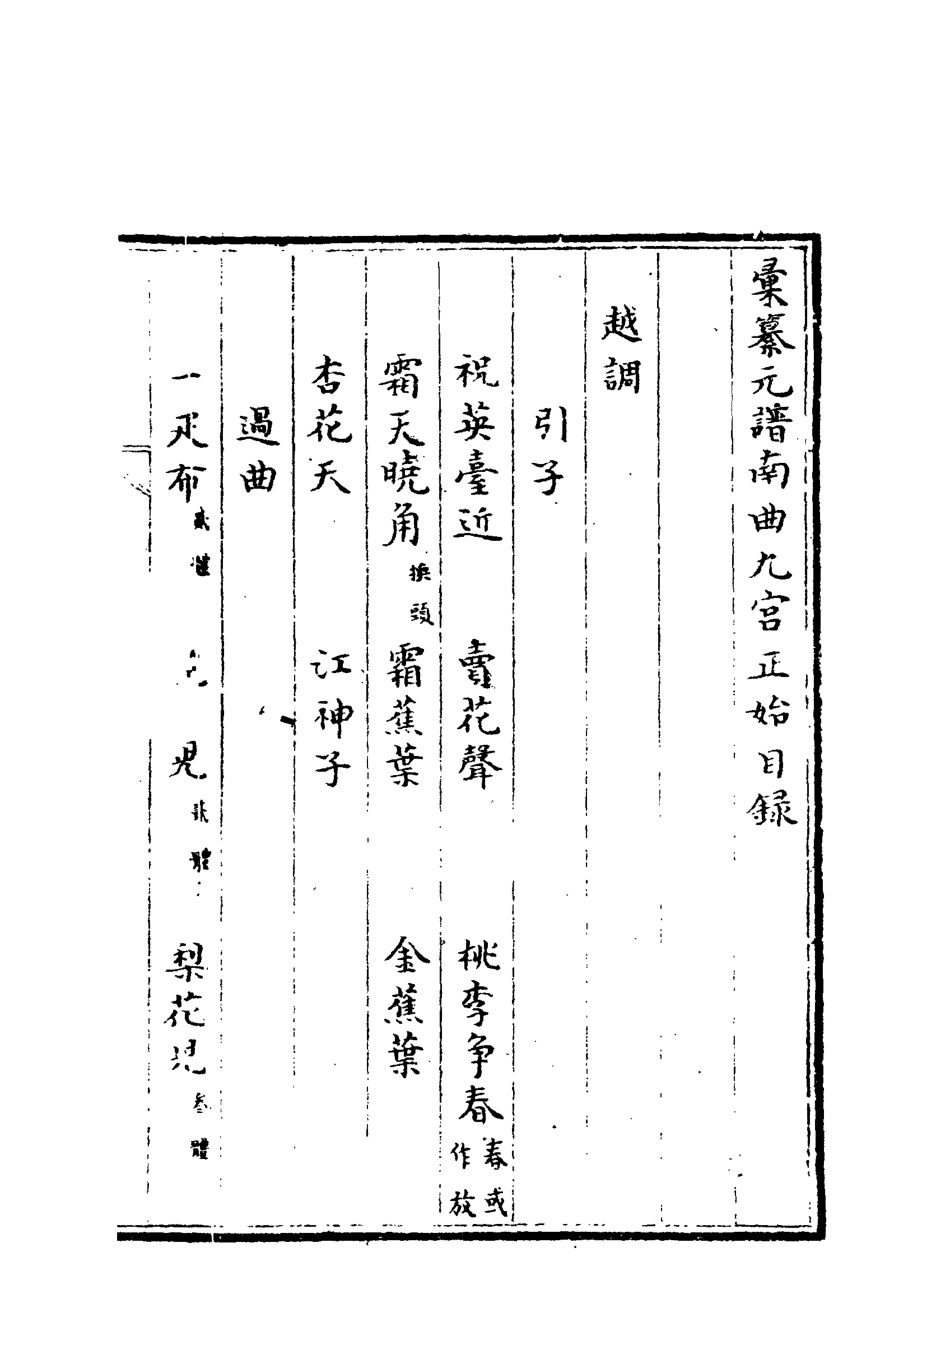 彙纂元譜南曲九宫正始目録
越調
引子
祝英臺近 賣花聲 桃李争春 春或作放
霜天曉角 換頭 霜蕉葉 金蕉葉
杏花天 江神子
過曲
一疋布 貳體 児 體 梨花児 叁體